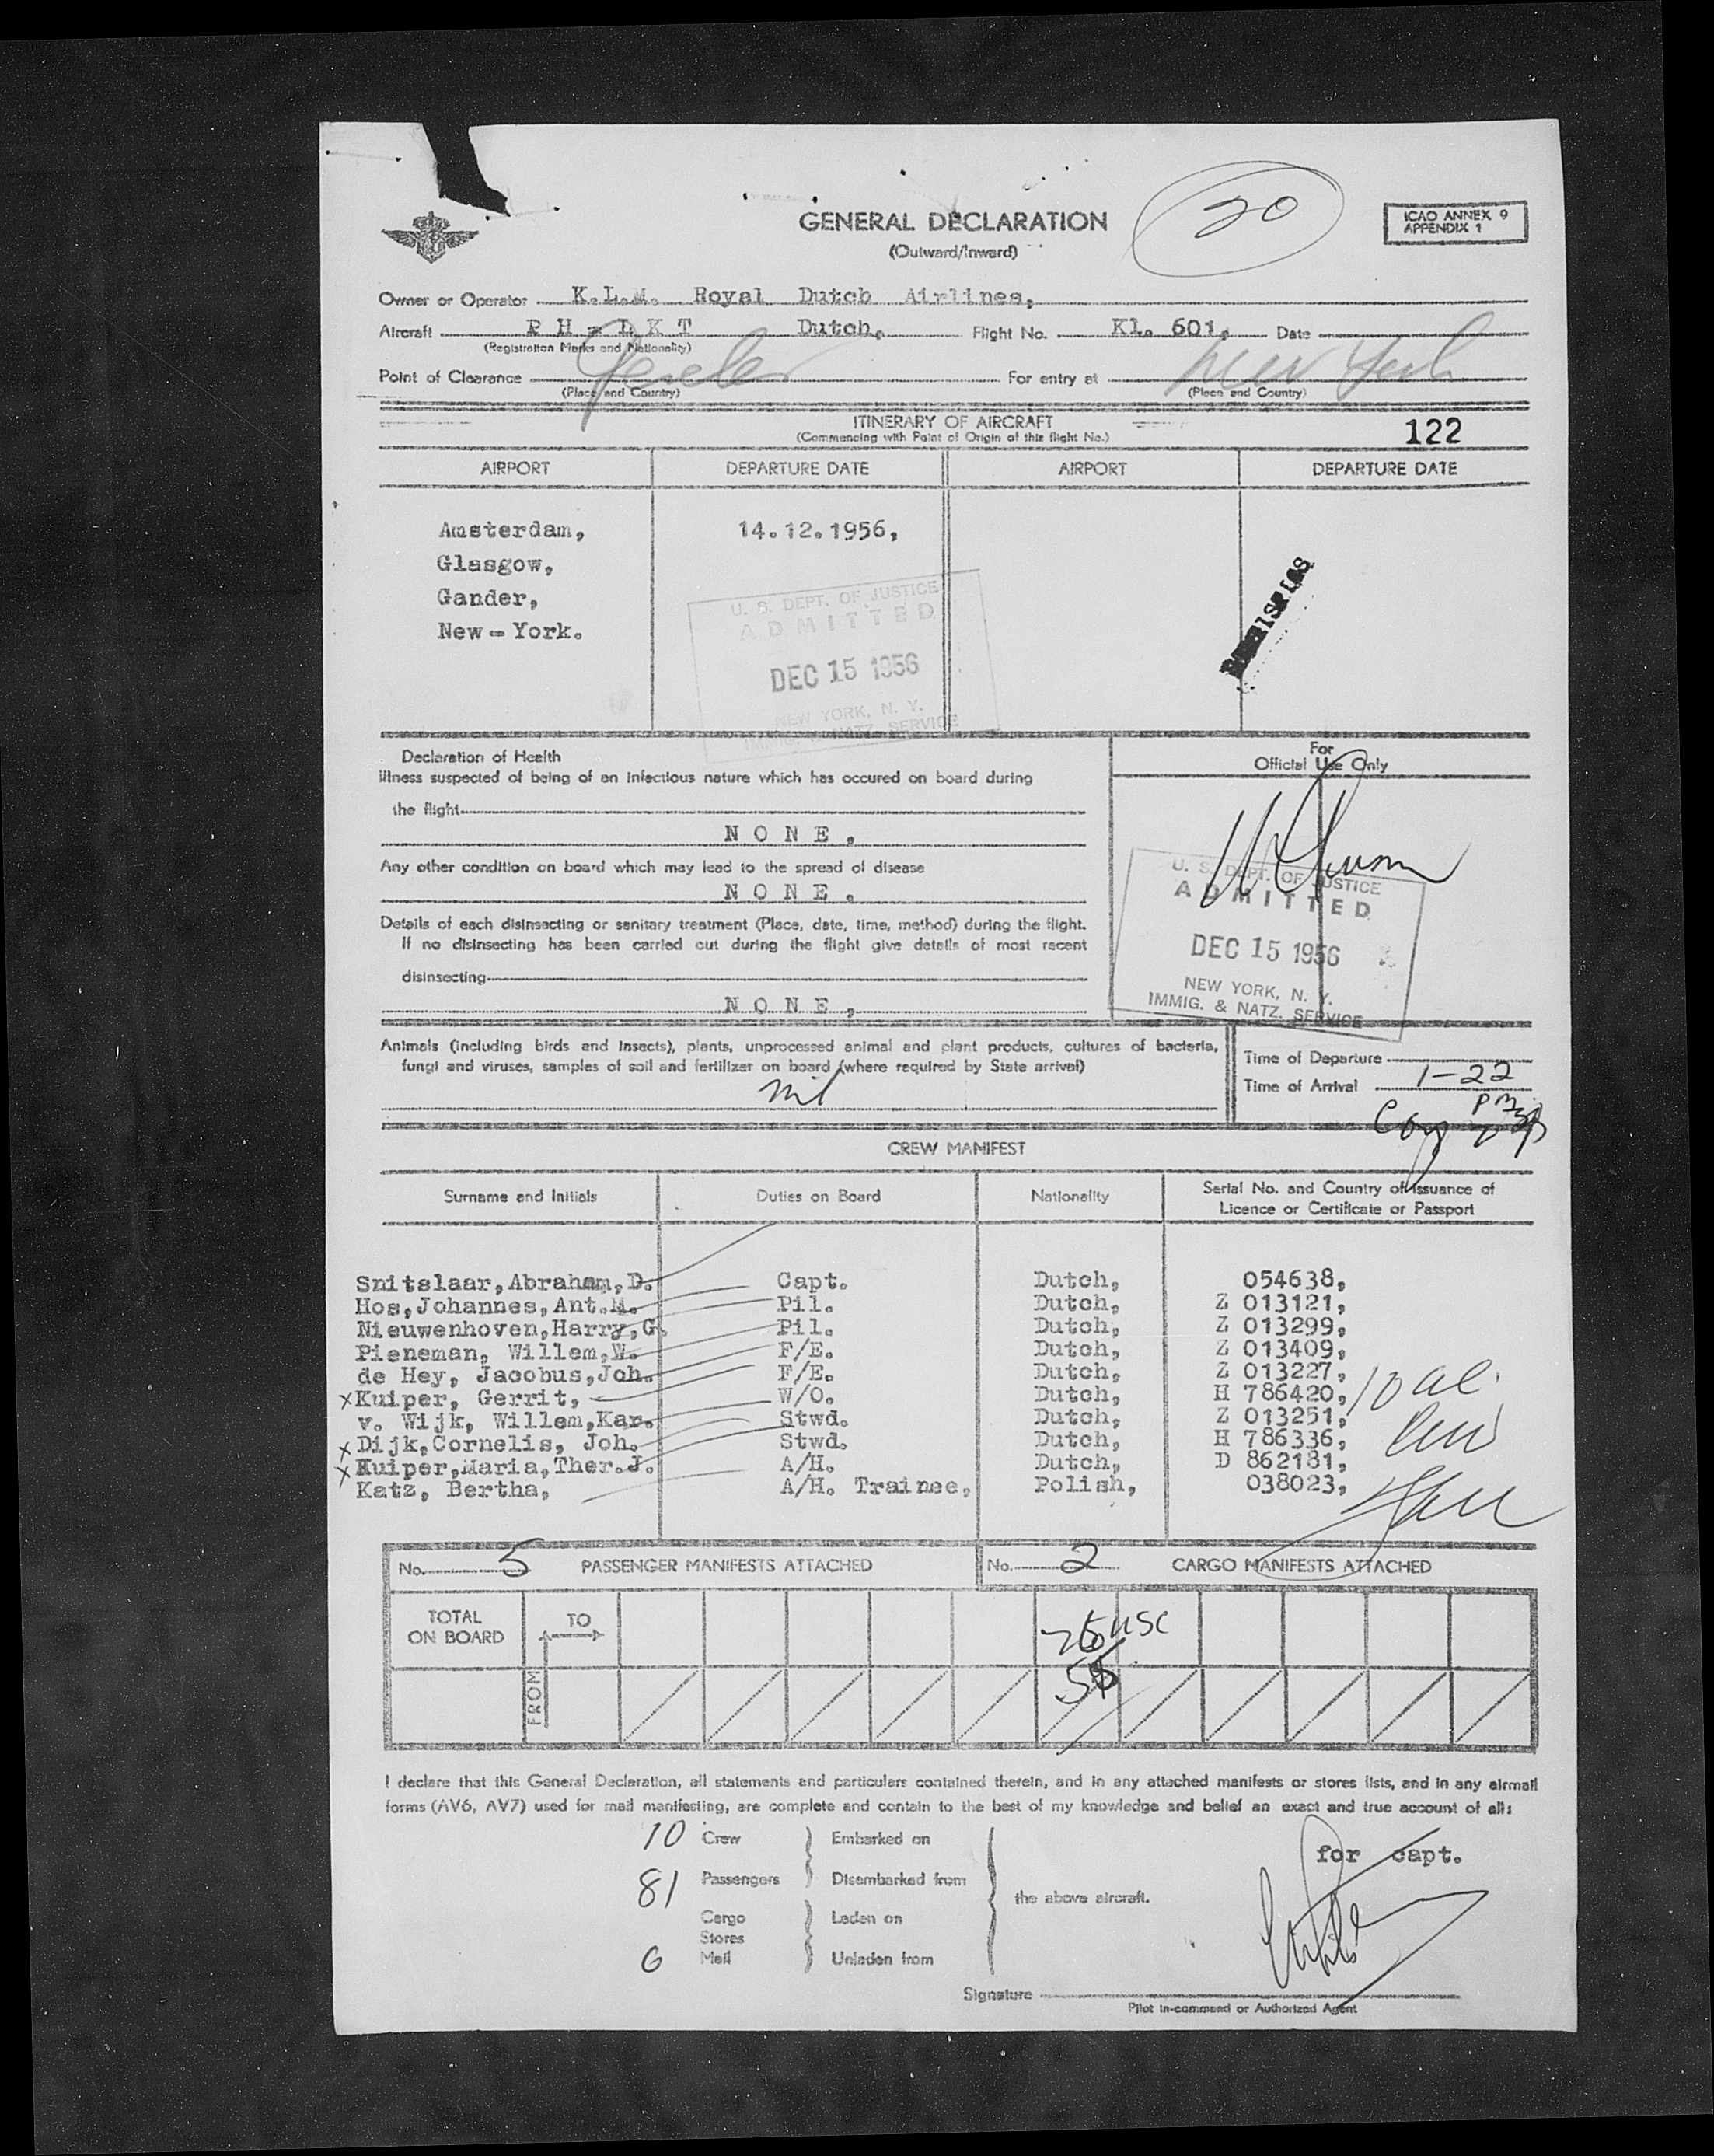 GENERAL DECLARATION
(Outward/Inward)
20
ICAO ANNEX 9
APPENDIX 1
Owner or Operator K.L.M. Royal Dutch Airlines,
Aircraft P H - L K T Dutch, Flight No. Kl. 601, Date
(Registration Marks and Nationality)
Point of Clearance For entry at New York
(Place and Country) (Place and Country)
ITINERARY OF AIRCRAFT
(Commencing with Point of Origin of this flight No.)
122
AIRPORT DEPARTURE DATE AIRPORT DEPARTURE DATE
Amsterdam, 14.12.1956,
Glasgow,
Gander,
New-York.
U. S. DEPT. OF JUSTICE
ADMITTED
DEC 15 1956
NEW YORK, N. Y.
IMMIG. & NATZ. SERVICE
Declaration of Health
Illness suspected of being of an infectious nature which has occured on board during
the flight
N O N E ,
Any other condition on board which may lead to the spread of disease
N O N E .
Details of each disinsecting or sanitary treatment (Place, date, time, method) during the flight.
If no disinsecting has been carried out during the flight give details of most recent
disinsecting
N O N E ,
For
Official Use Only
U. S. DEPT. OF JUSTICE
ADMITTED
DEC 15 1956
NEW YORK, N. Y.
IMMIG. & NATZ. SERVICE
Animals (including birds and insects), plants, unprocessed animal and plant products, cultures of bacteria,
fungi and viruses, samples of soil and fertilizer on board (where required by State arrival)
nil
Time of Departure
Time of Arrival 1-22
pm
CREW MANIFEST
Surname and Initials Duties on Board Nationality Serial No. and Country of Issuance of
Licence or Certificate or Passport
Snitslaar,Abraham,D. Capt. Dutch, 054638,
Hos,Johannes,Ant.M. Pil. Dutch, Z 013121,
Nieuwenhoven,Harry,G. Pil. Dutch, Z 013299,
Pieneman, Willem,W. F/E. Dutch, Z 013409,
de Hey, Jacobus,Joh. F/E. Dutch, Z 013227,
x Kuiper, Gerrit, W/O. Dutch, H 786420,
v. Wijk, Willem,Kar. Stwd. Dutch, Z 013251,
x Dijk,Cornelis, Joh. Stwd. Dutch, H 786336,
x Kuiper,Maria,Ther.J. A/H. Dutch, D 862181,
Katz, Bertha, A/H. Trainee, Polish, 038023,
No. 5 PASSENGER MANIFESTS ATTACHED No. 2 CARGO MANIFESTS ATTACHED
TOTAL
ON BOARD
TO
FROM
I declare that this General Declaration, all statements and particulars contained therein, and in any attached manifests or stores lists, and in any airmail
forms (AV6, AV7) used for mail manifesting, are complete and contain to the best of my knowledge and belief an exact and true account of all:
10 Crew Embarked on
81 Passengers Disembarked from
the above aircraft.
Cargo Laden on
Stores
Mail Unladen from
for capt.
Signature
Pilot in-command or Authorized Agent